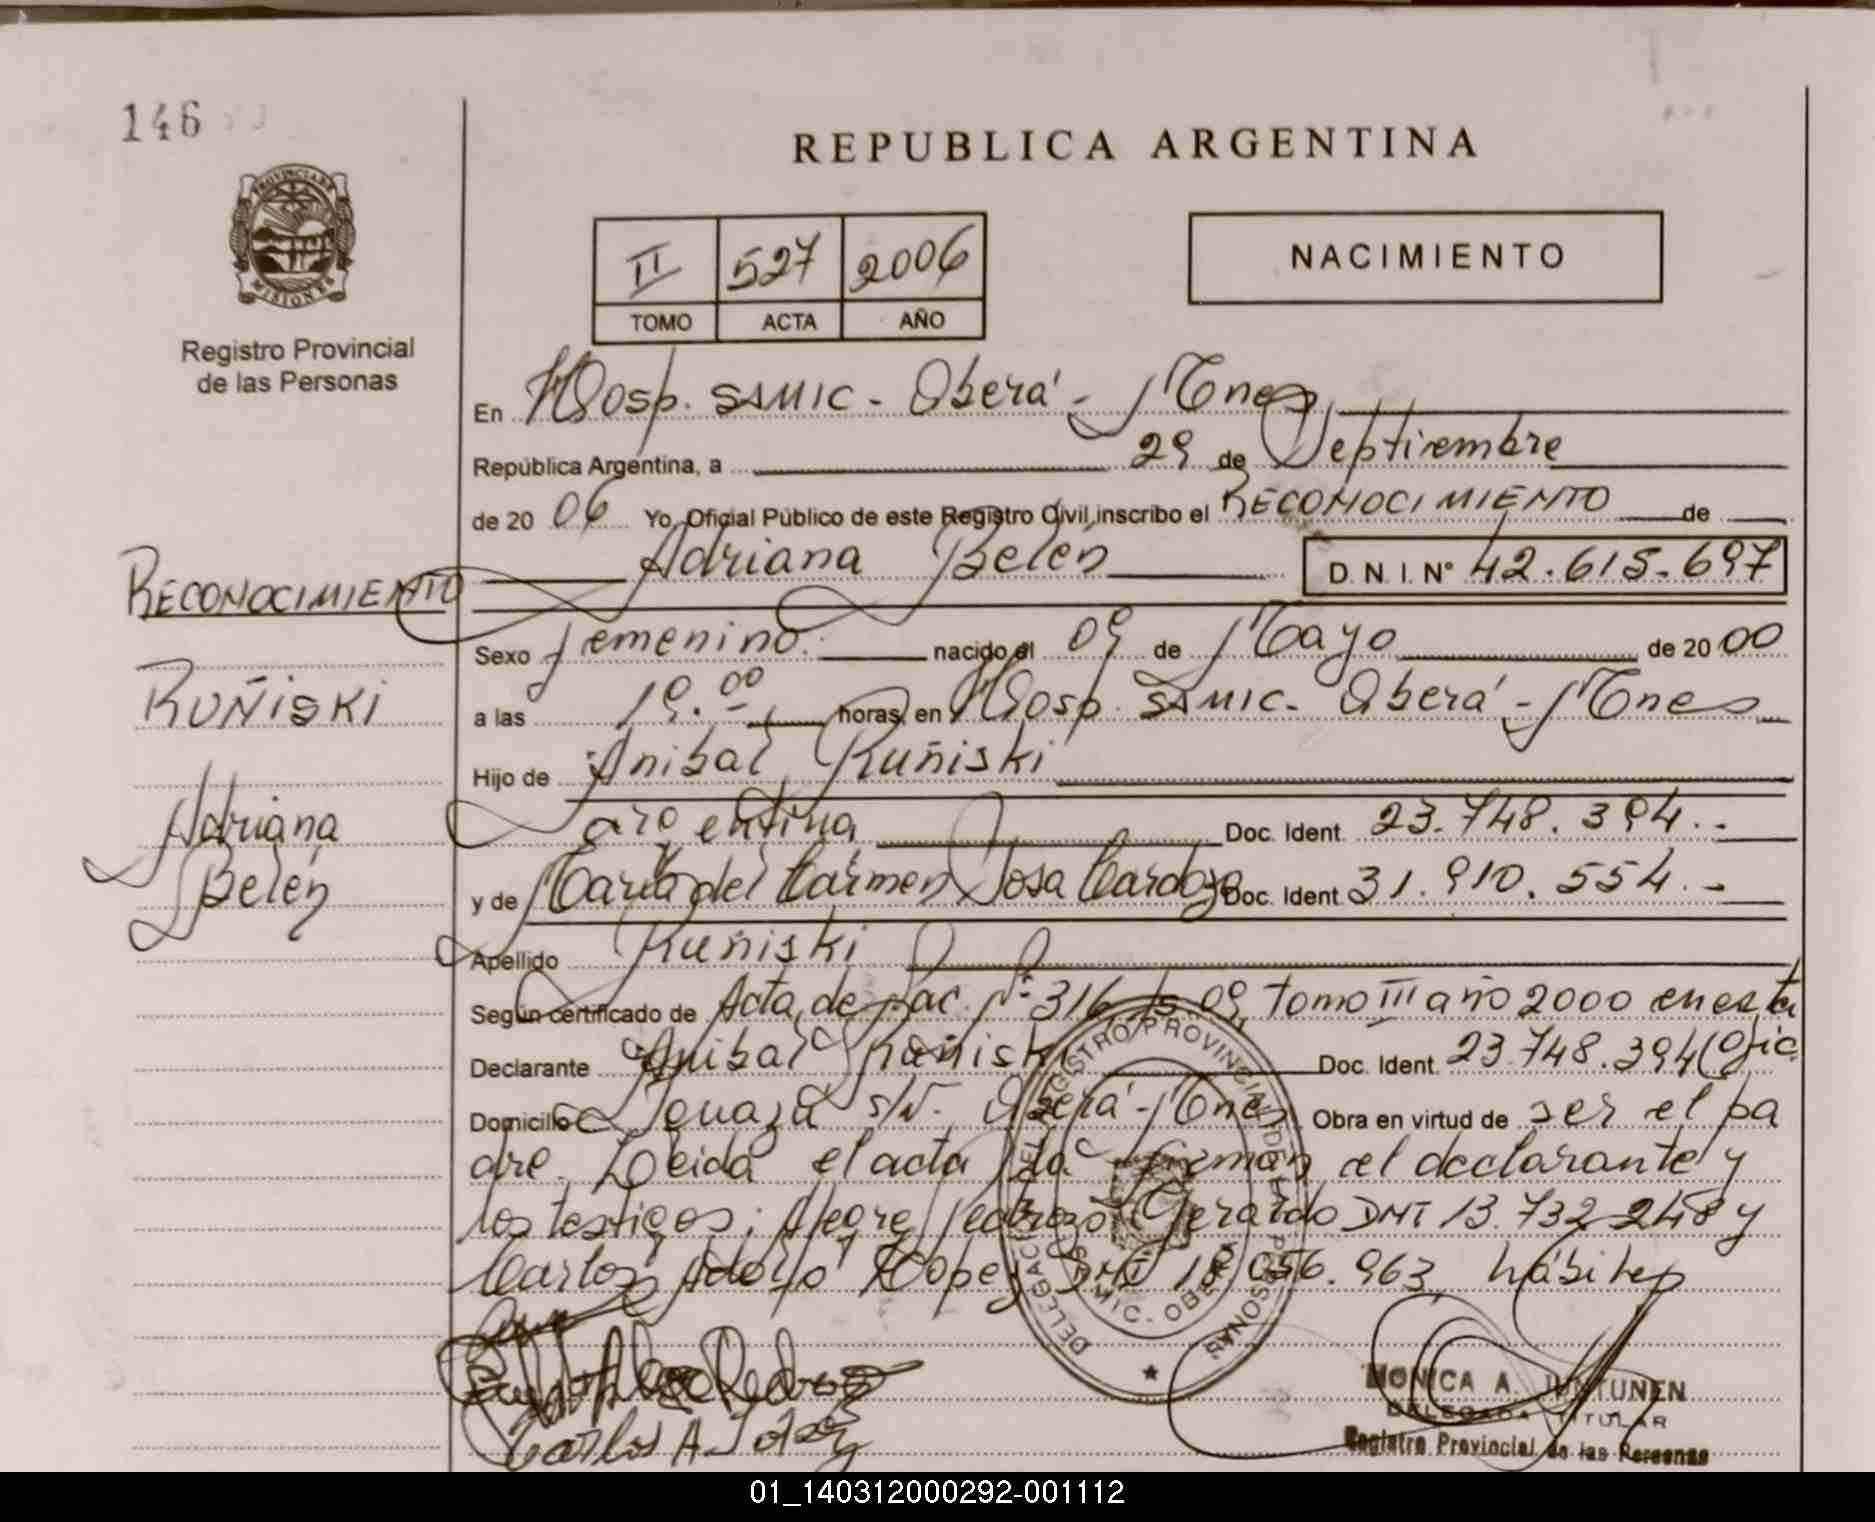 146
REPUBLICA ARGENTINA
PROVINCIA DE
MISIONES
Registro Provincial
de las Personas
II 527 2006
TOMO ACTA AÑO
NACIMIENTO
En Hosp. SAMIC - Oberá - Mnes
República Argentina, a 29 de Septiembre
de 20 06 Yo, Oficial Público de este Registro Civil, inscribo el RECONOCIMIENTO de
Adriana Belén D. N. I. N° 42.615.697
RECONOCIMIENTO
Sexo femenino. nacido el 09 de Mayo de 20 00
RUÑISKI
a las 19.00 horas, en Hosp. SAMIC - Oberá - Mnes
Hijo de Anibal Ruñiski
Adriana
Belén
argentina Doc. Ident. 23.748.394.-
y de María del Carmen Rosa Cardozo Doc. Ident. 31.910.554.-
Apellido Ruñiski
Según certificado de Acta de Nac. N° 316 Fs 09, tomo III año 2000 en esta
Declarante Anibal Ruñiski Doc. Ident. 23.748.394 (Ofic.
Domicilio Iguazú s/N. Oberá - Mnes Obra en virtud de ser el pa
dre. Leida el acta la firman el declarante y
los testigos: Alegre Pedrozo Gerardo DNI 13.732.248 y
Carlos Adolfo Lopez DNI 18.056.963, hábiles
DELEGACION DEL REGISTRO PROVINCIAL DE LAS PERSONAS
SAMIC - OBERA
Carlos A. Lopez
MONICA A. JUNTUNEN
DELEGADA TITULAR
Registro Provincial de las Personas
01_140312000292-001112